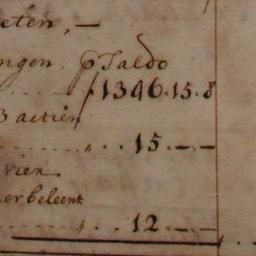 eten, —
ngen, p Saldo
ƒ 1346.15.8
3 actiën
15.—.—
vien
verbeleent
12.—.—